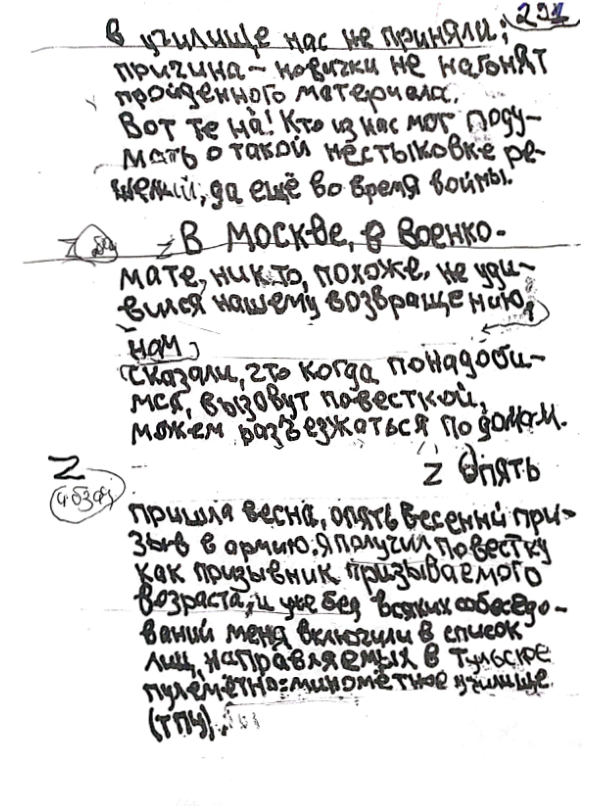 291
в училище нас не приняли;
причина – новички не нагонят
пройденного материала.
Вот те на! Кто из нас мог поду-
мать о такой нестыковке ре-
шений, да ещё во время войны.
Z В Москве, в военко-
мате, никто, похоже, не уди-
вился нашему возвращению,
нам
сказали, что когда понадоби-
мся, вызовут повесткой,
можем разъезжаться по домам.
Z Z Опять
(абзац)
пришла весна, опять весенний при-
зыв в армию. Я получил повестку
как призывник призываемого
возраста, и уже без всяких собеседо-
ваний меня включили в список
лиц, направляемых в Тульское
пулемётно-миномётное училище
(ТПУ).